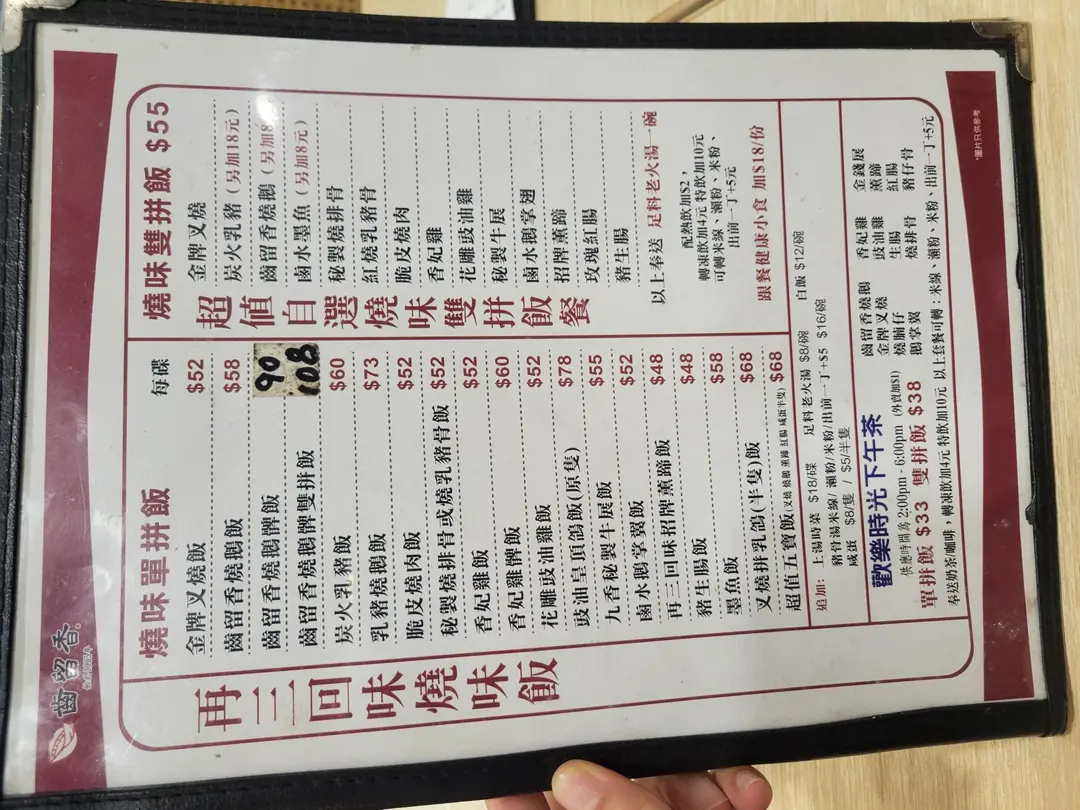 齒留香
再三回味燒味飯
燒味單拼飯 每碟
金牌叉燒飯 $52
齒留香燒鵝飯 $58
齒留香燒鵝髀飯 90
齒留香燒鵝髀雙拼飯 108
炭火乳豬飯 $60
乳豬燒鵝飯 $73
脆皮燒肉飯 $52
秘製燒排骨或燒乳豬骨飯 $52
香妃雞飯 $52
香妃雞髀飯 $60
花雕豉油雞飯 $52
豉油皇頂鴿飯(原隻) $78
九香秘製牛展飯 $55
鹵水鵝掌翼飯 $52
再三回味招牌薰蹄飯 $48
豬生腸飯 $48
墨魚飯 $58
叉燒拼乳鴿(半隻)飯 $68
超值五寶飯(叉燒 燒鵝 薰蹄 紅腸 咸蛋半隻) $68
燒味雙拼飯 $55
超值自選燒味雙拼飯餐
金牌叉燒
炭火乳豬(另加18元)
齒留香燒鵝(另加8
鹵水墨魚(另加8元)
秘製燒排骨
紅燒乳豬骨
脆皮燒肉
香妃雞
花雕豉油雞
秘製牛展
鹵水鵝掌翅
招牌薰蹄
玫瑰紅腸
豬生腸
以上奉送 足料老火湯一碗
配熱飲加$2,
轉凍飲加4元 特飲加10元
可轉米線、瀨粉、米粉、
出前一丁+5元
跟餐健康小食 加$18/份
追加: 上湯時菜 $18/碟 足料老火湯 $8/碗 白飯 $12/碗
豬骨湯米線/瀨粉/米粉/出前一丁+$5 $16/碗
咸蛋 $8/隻 / $5/半隻
歡樂時光下午茶
供應時間為 2:00pm - 6:00pm (外賣加$1)
單拼飯 $33 雙拼飯 $38
齒留香燒鵝 香妃雞 金錢展
金牌叉燒 豉油雞 薰蹄
燒腩仔 生腸 紅腸
鵝掌翼 燒排骨 豬仔骨
奉送奶茶/咖啡，轉凍飲加4元 特飲加10元 以上套餐可轉：米線、瀨粉、米粉、出前一丁+5元
*圖片只供參考